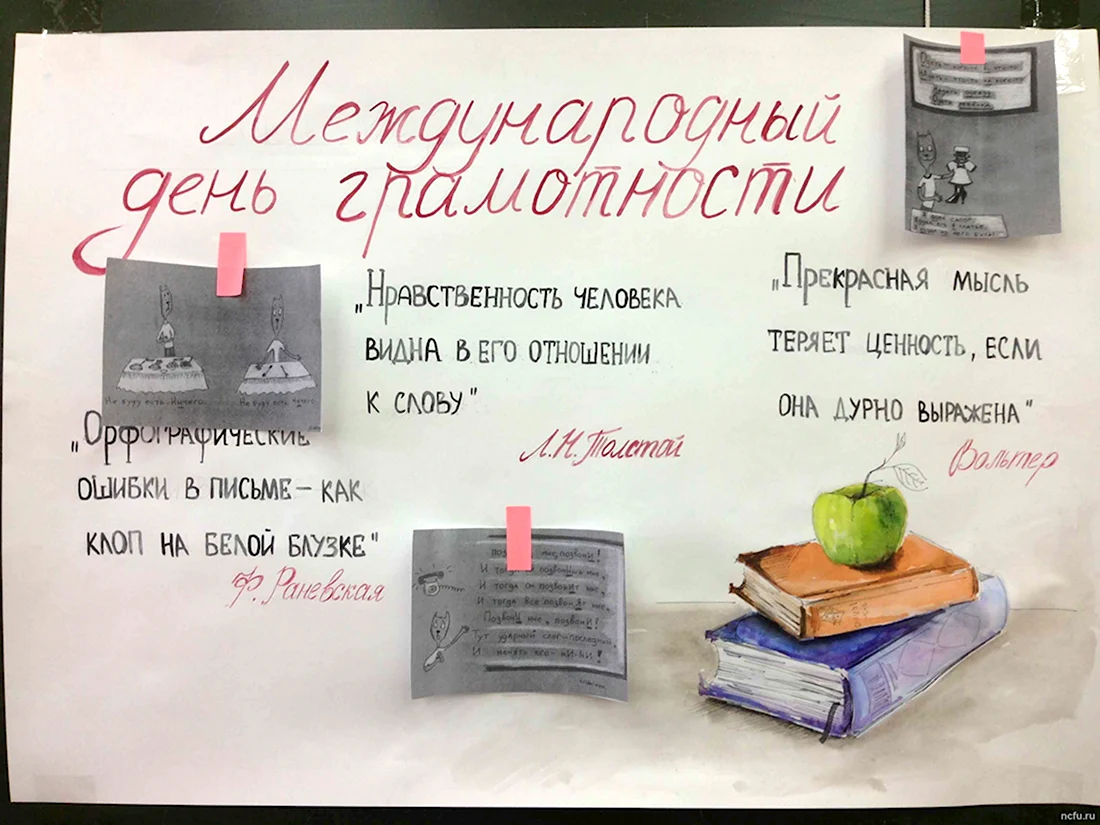 Международный
день грамотности
„Нравственность человека
видна в его отношении
к слову"
Л.Н. Толстой
„Прекрасная мысль
теряет ценность, если
она дурно выражена"
Вольтер
Не буду есть. Ничего.
Не буду есть. Нечего.
„Орфографические
ошибки в письме – как
клоп на белой блузке"
Ф. Раневская
мне, позвонИ!
И тогда
И тогда он позвонИт мне,
И тогда все позвонЯт мне,
ПозвонИ мне, позвонИ!
Тут ударный слог последний,
И менять его – ни-ни!
ncfu.ru